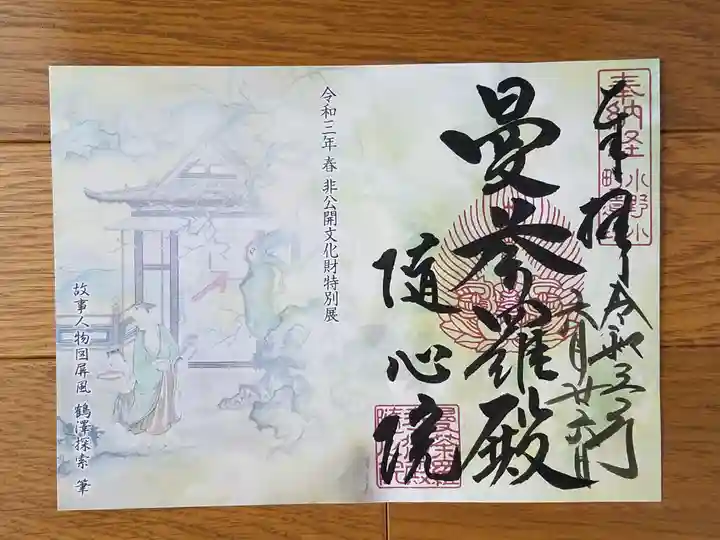 奉拝
令和三年
六月廿六日
曼荼羅殿
随心院
令和三年 春 非公開文化財特別展
故事人物図屏風 鶴澤探索 筆
奉納経